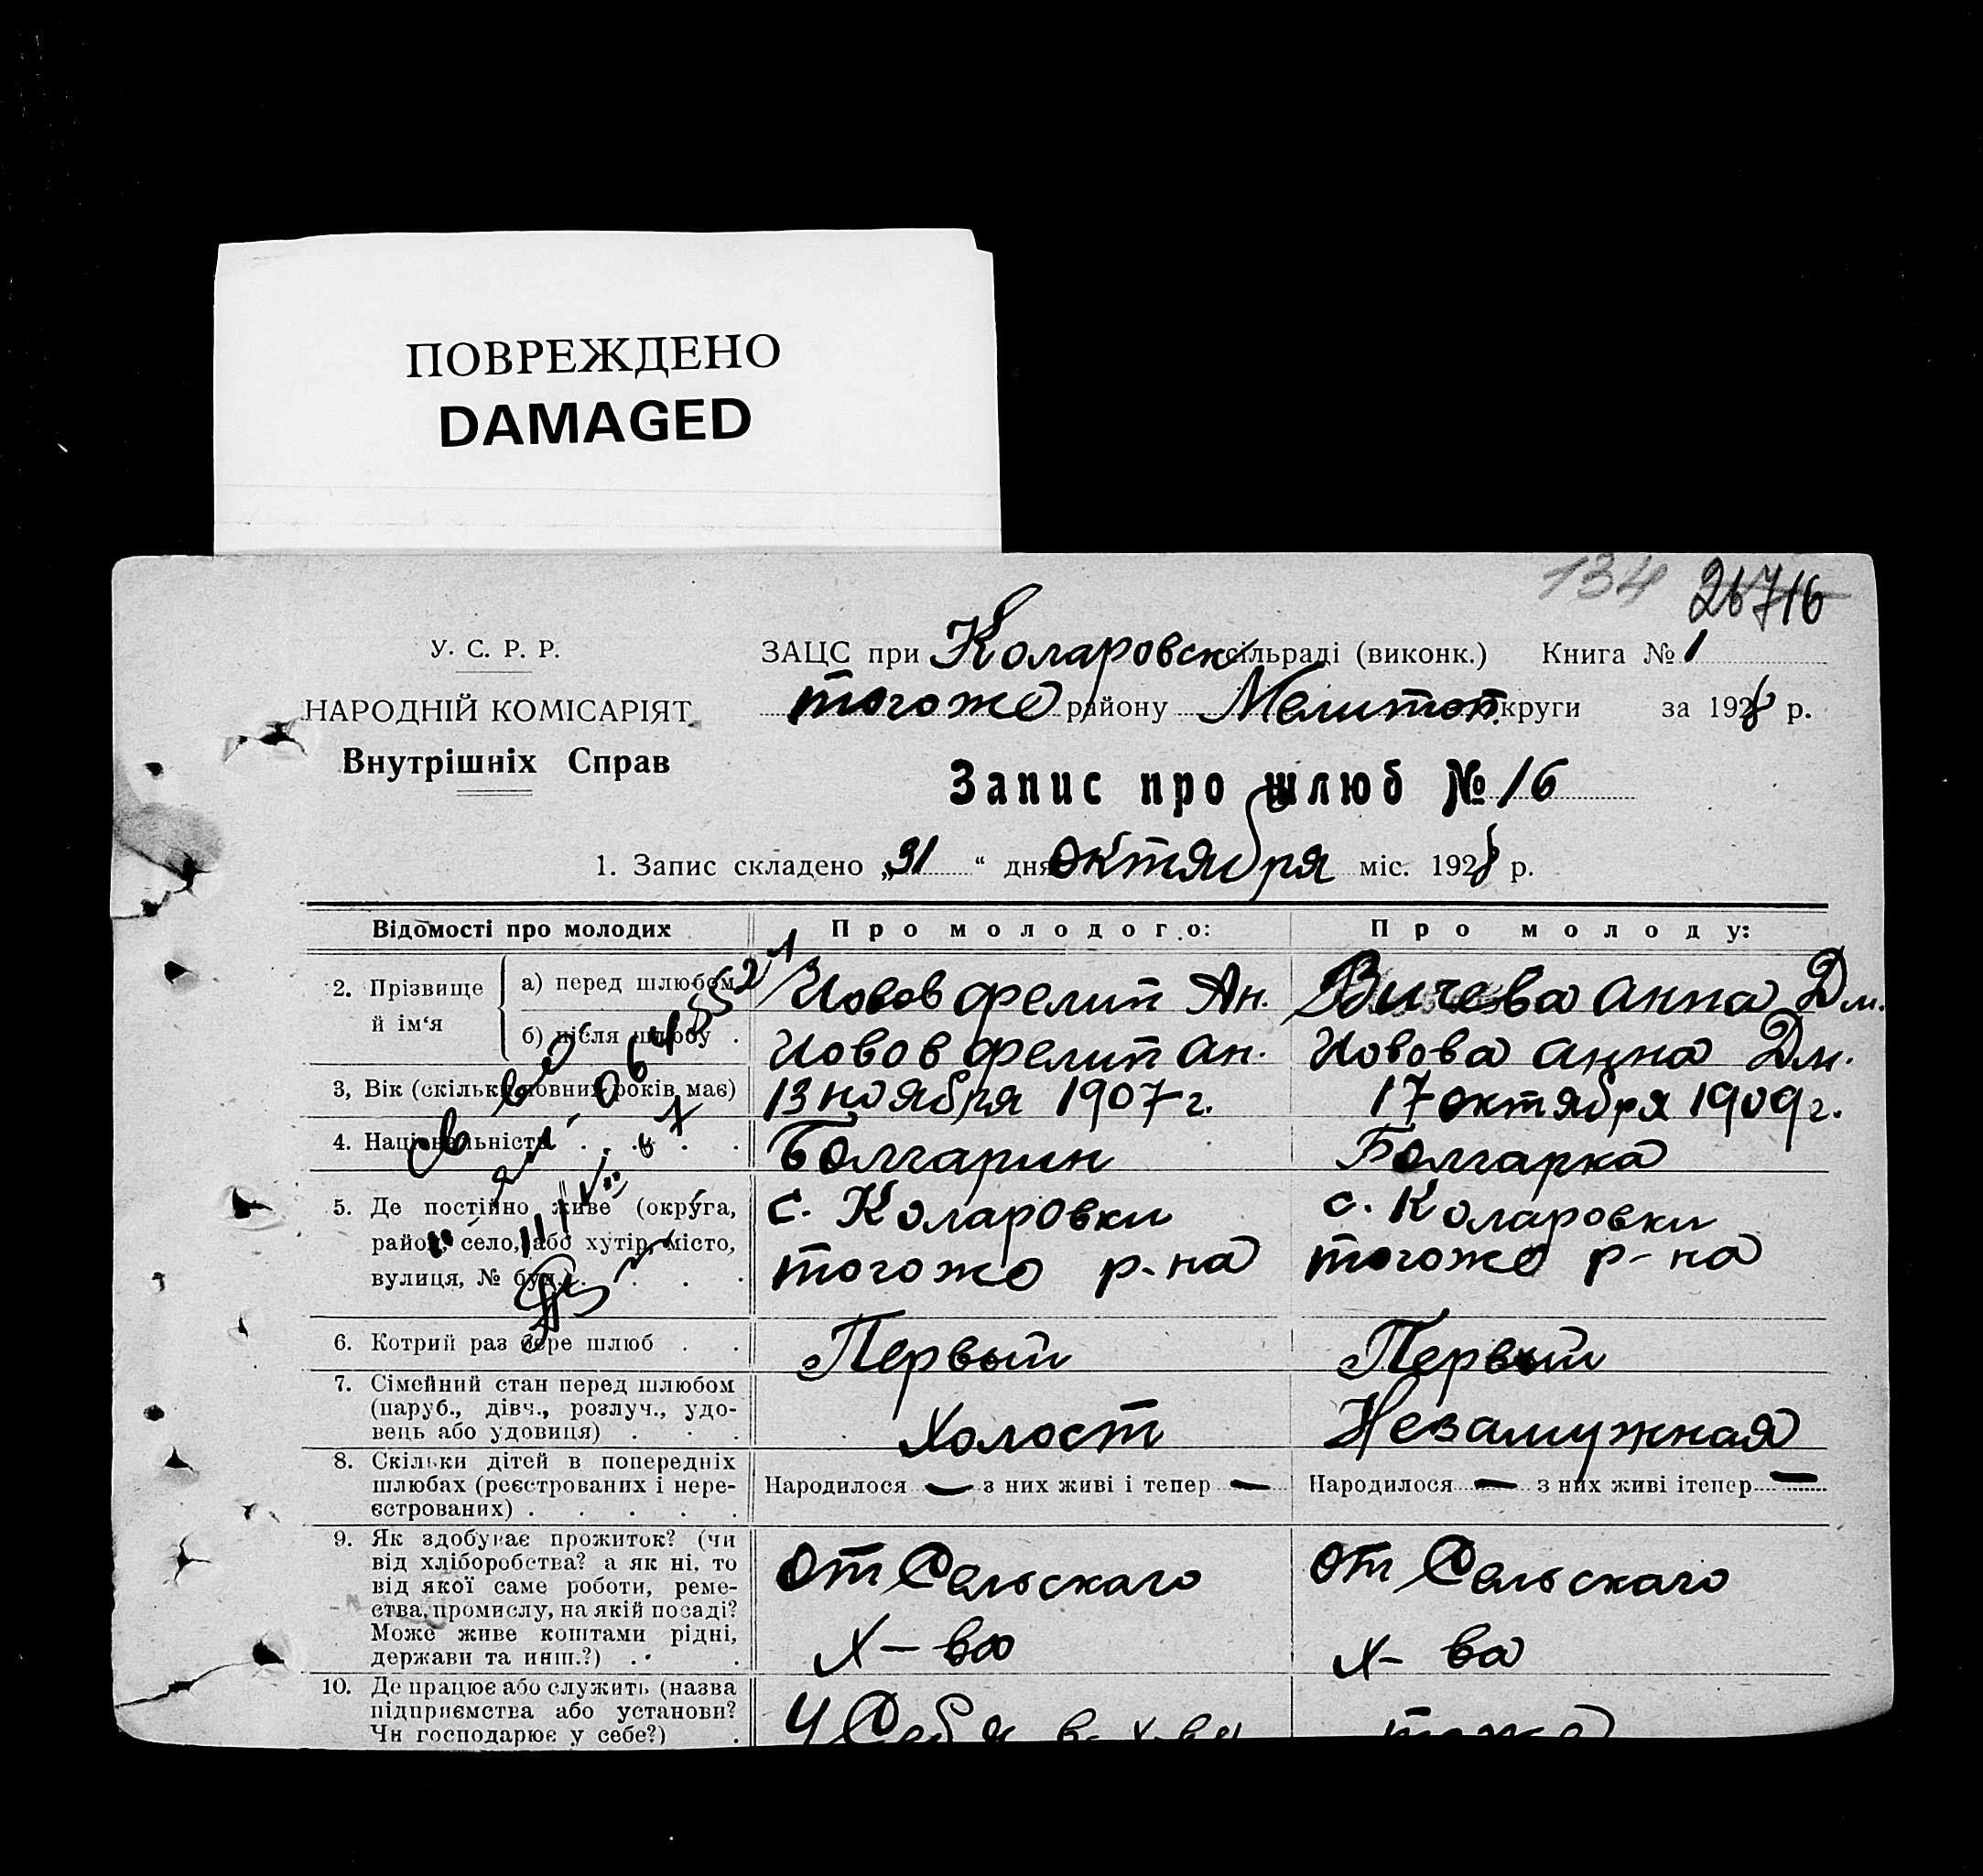 ПОВРЕЖДЕНО
DAMAGED
134 26716
У. С. Р. Р.
НАРОДНІЙ КОМІСАРІЯТ
Внутрішніх Справ
ЗАЦС при Коларовск сільраді (виконк.) Книга № 1
тогоже району Мелитоп. округи за 1928 р.
Запис про шлюб № 16
1. Запис складено „31“ дня октября міс. 1928 р.
Відомості про молодих
Про молодого:
Про молоду:
2. Прізвище й ім‘я
а) перед шлюбом
Иовов Фелип Ан.
Вичева Анна Дм.
б) після шлюбу .
Иовов Фелип Ан.
Иовова Анна Дм.
3, Вік (скільки повних років має)
13 ноября 1907 г.
17 октября 1909 г.
4. Національність . . . .
Болгарин
Болгарка
5. Де постійно живе (округа,
район, село, або хутір, місто,
вулиця, № буд.) . . . .
с. Коларовки
тогоже р-на
с. Коларовки
тогоже р-на
6. Котрий раз бере шлюб . .
Первый
Первый
7. Сімейний стан перед шлюбом
(паруб., дівч., розлуч., удо-
вець або удовиця) . . .
Холост
Незамужная
8. Скільки дітей в попередніх
шлюбах (реєстрованих і нере-
єстрованих) . . . . .
Народилося — з них живі і тепер —
Народилося — з них живі ітепер —
9. Як здобуває прожиток? (чи
від хліборобства? а як ні, то
від якої саме роботи, реме-
ства, промислу, на якій посаді?
Може живе коштами рідні,
держави та инш.?) . .
от Сельскаго
х-ва
от Сельскаго
х-ва
10. Де працює або служить (назва
підприємства або установи?
Чи господарює у себе?) .
У Себя в х-ве
тоже